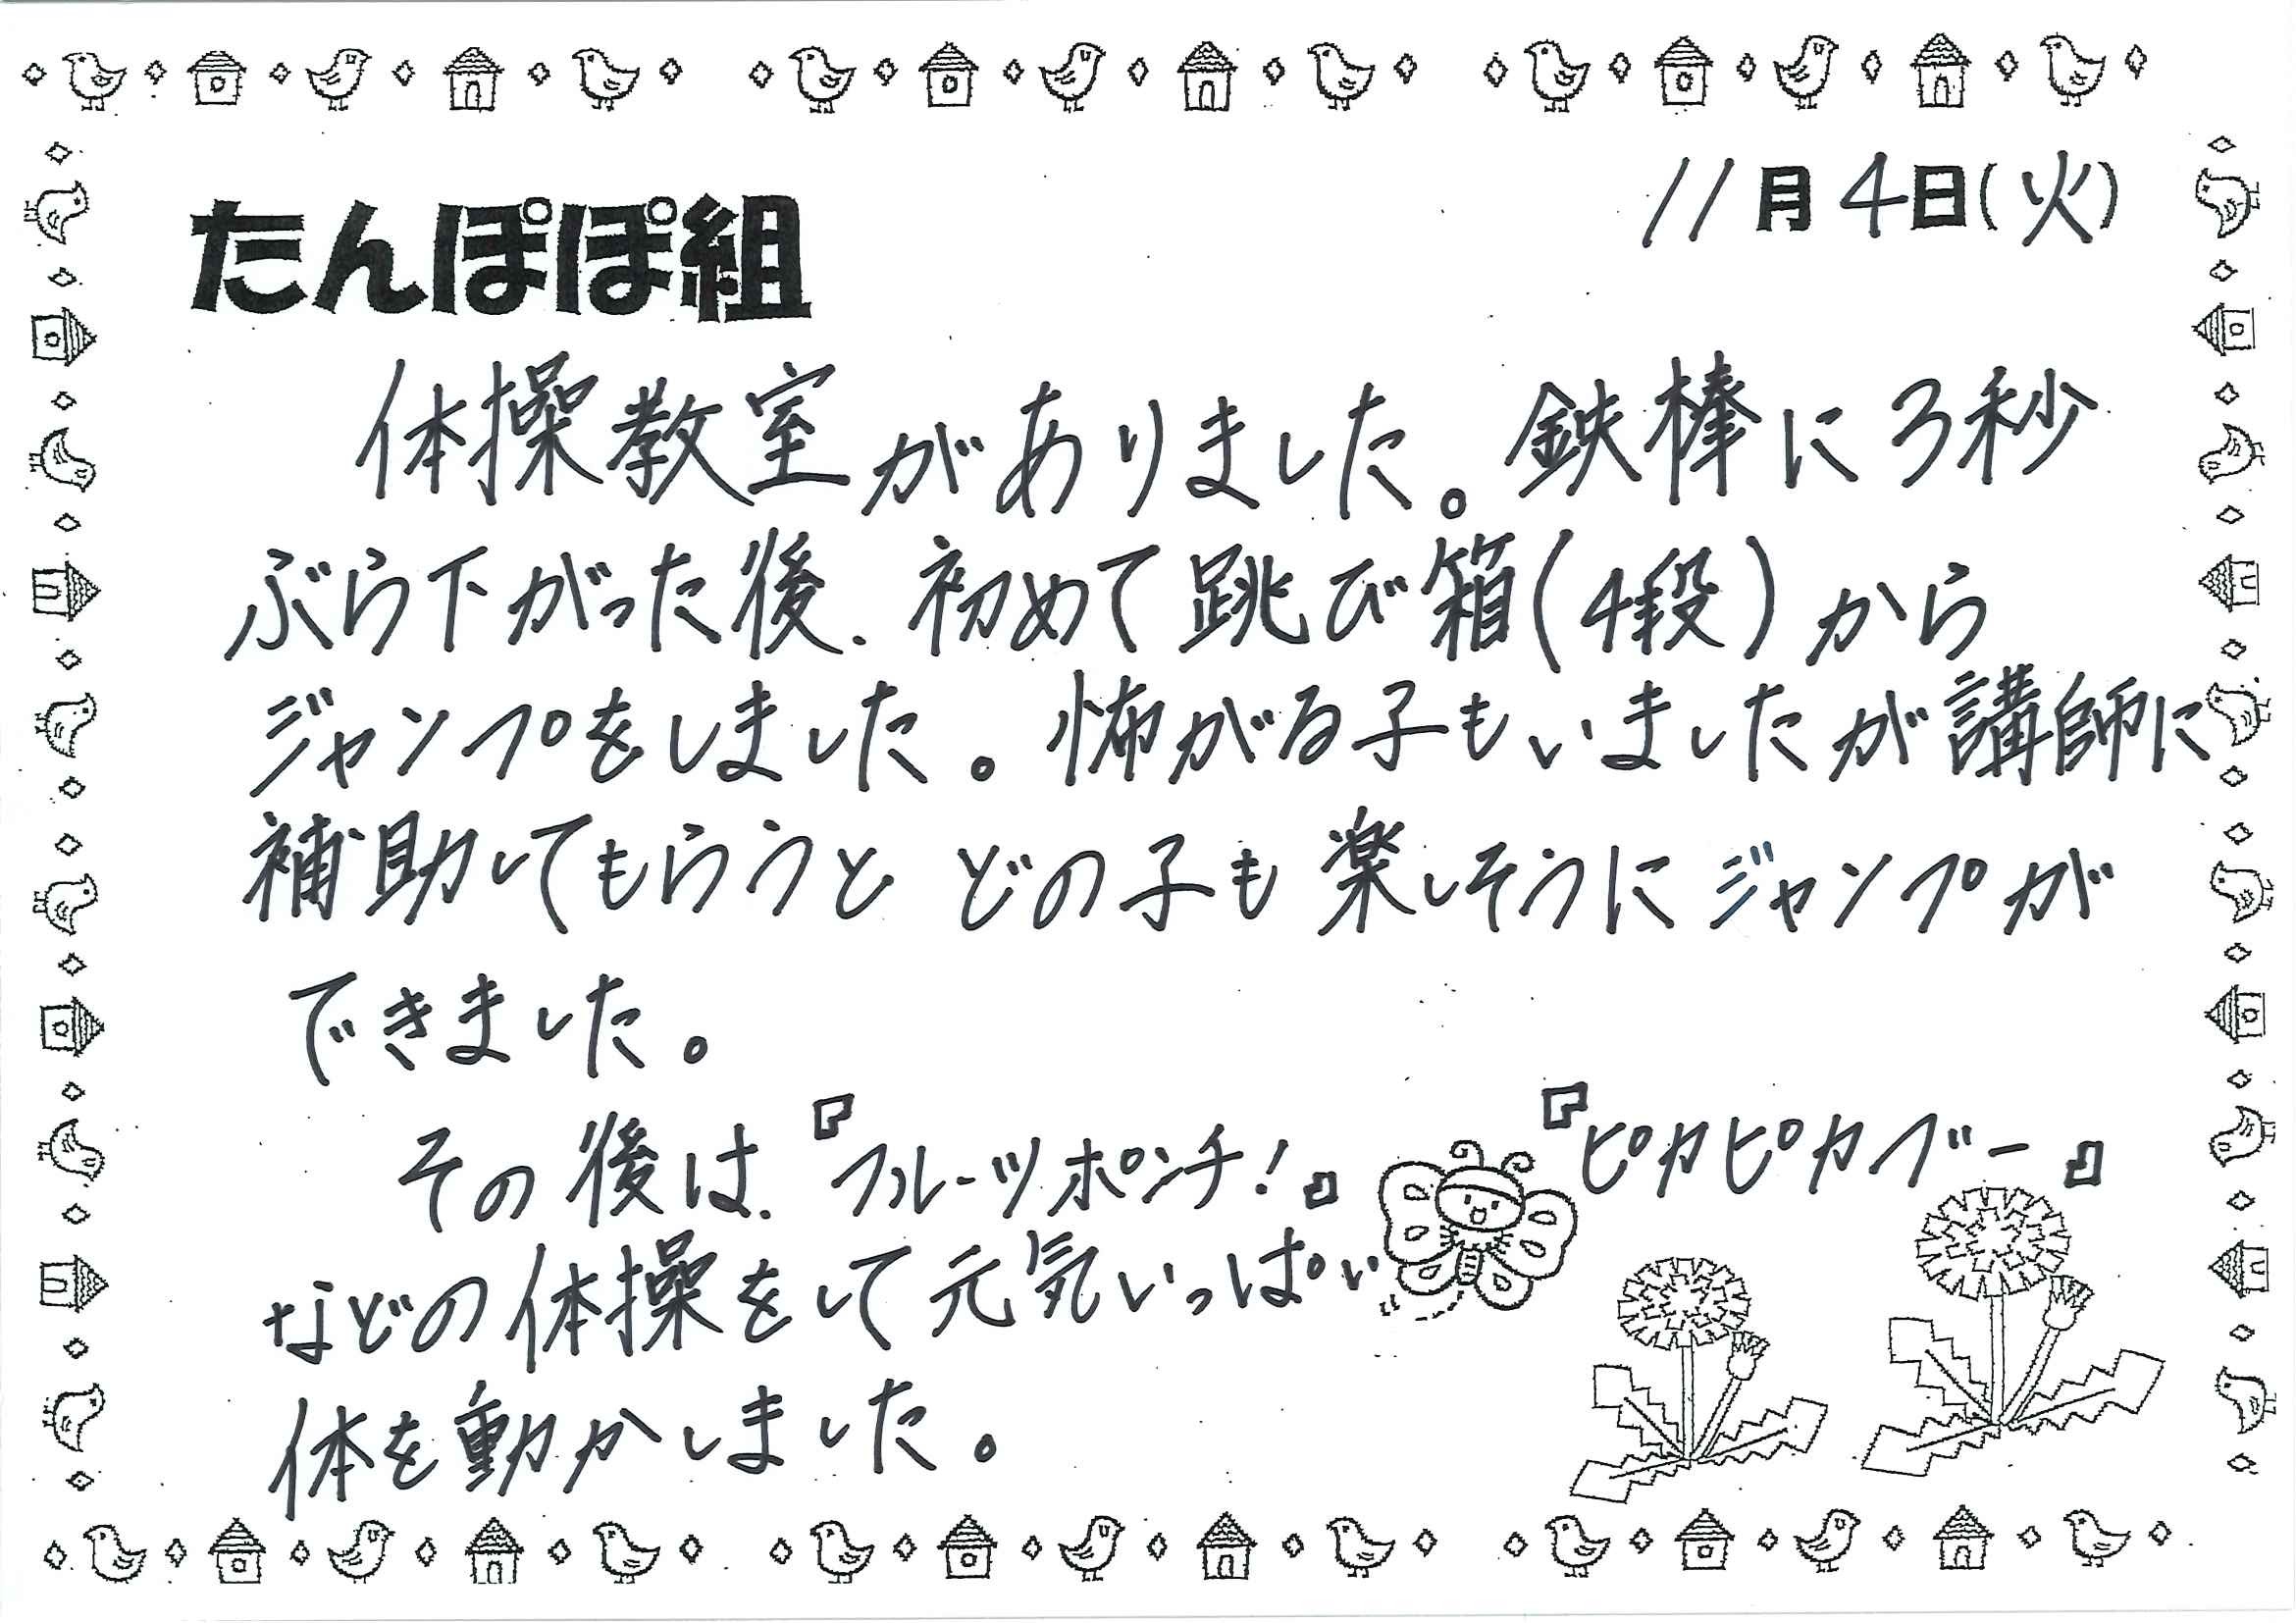 11月4日(火)
たんぽぽ組
体操教室がありました。鉄棒に3秒
ぶら下がった後、初めて跳び箱(4段)から
ジャンプをしました。怖がる子もいましたが講師に
補助してもらうと どの子も楽しそうにジャンプが
できました。
その後は、『フルーツポンチ!』『ピカピカブー』
などの体操をして元気いっぱい
体を動かしました。